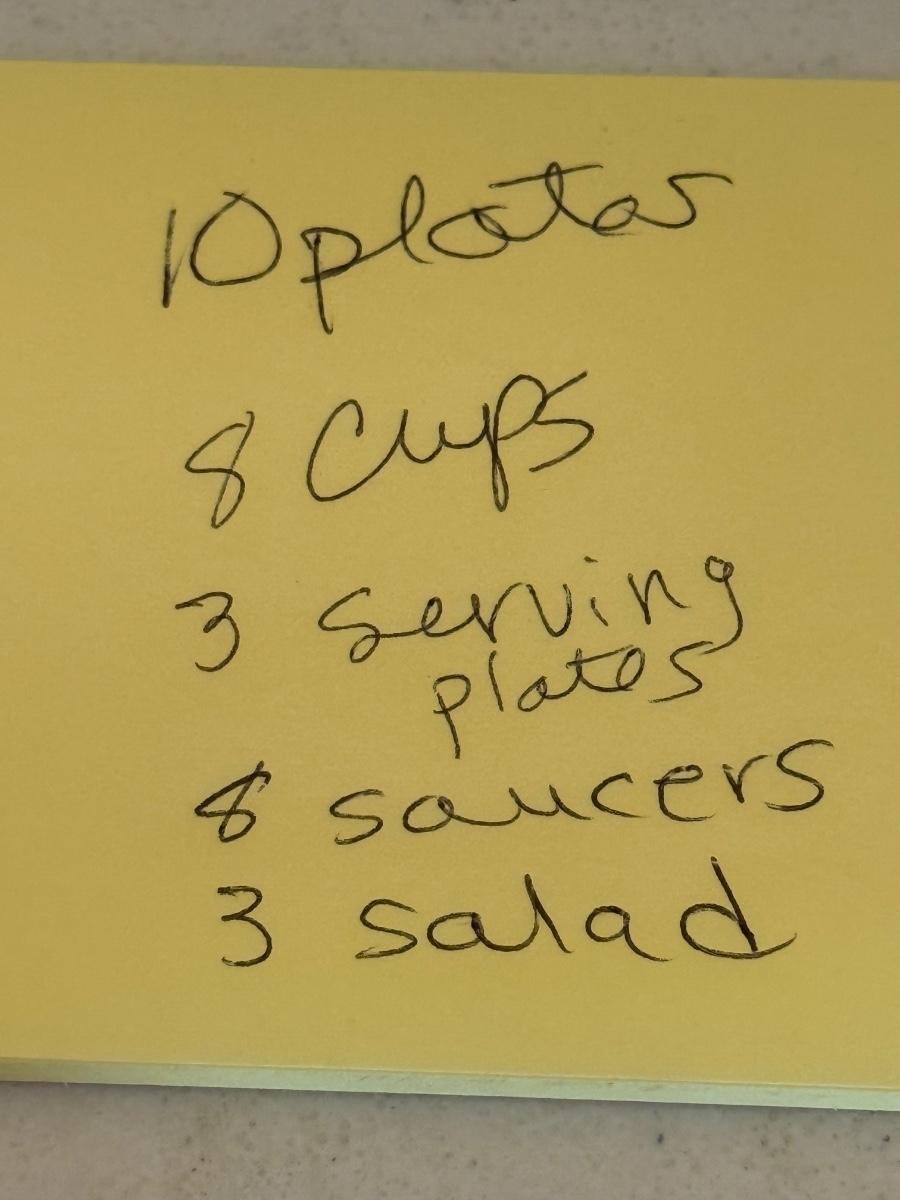 10 plates
8 cups
3 serving
plates
8 saucers
3 salad